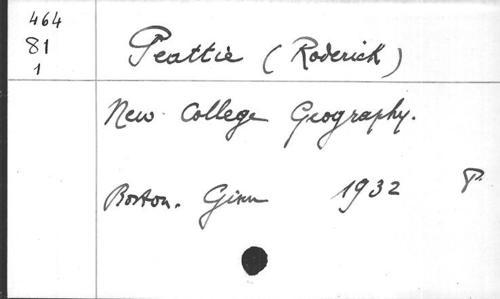 464
81
1
Peattie (Roderick)
New College Geography.
Boston. Ginn 1932